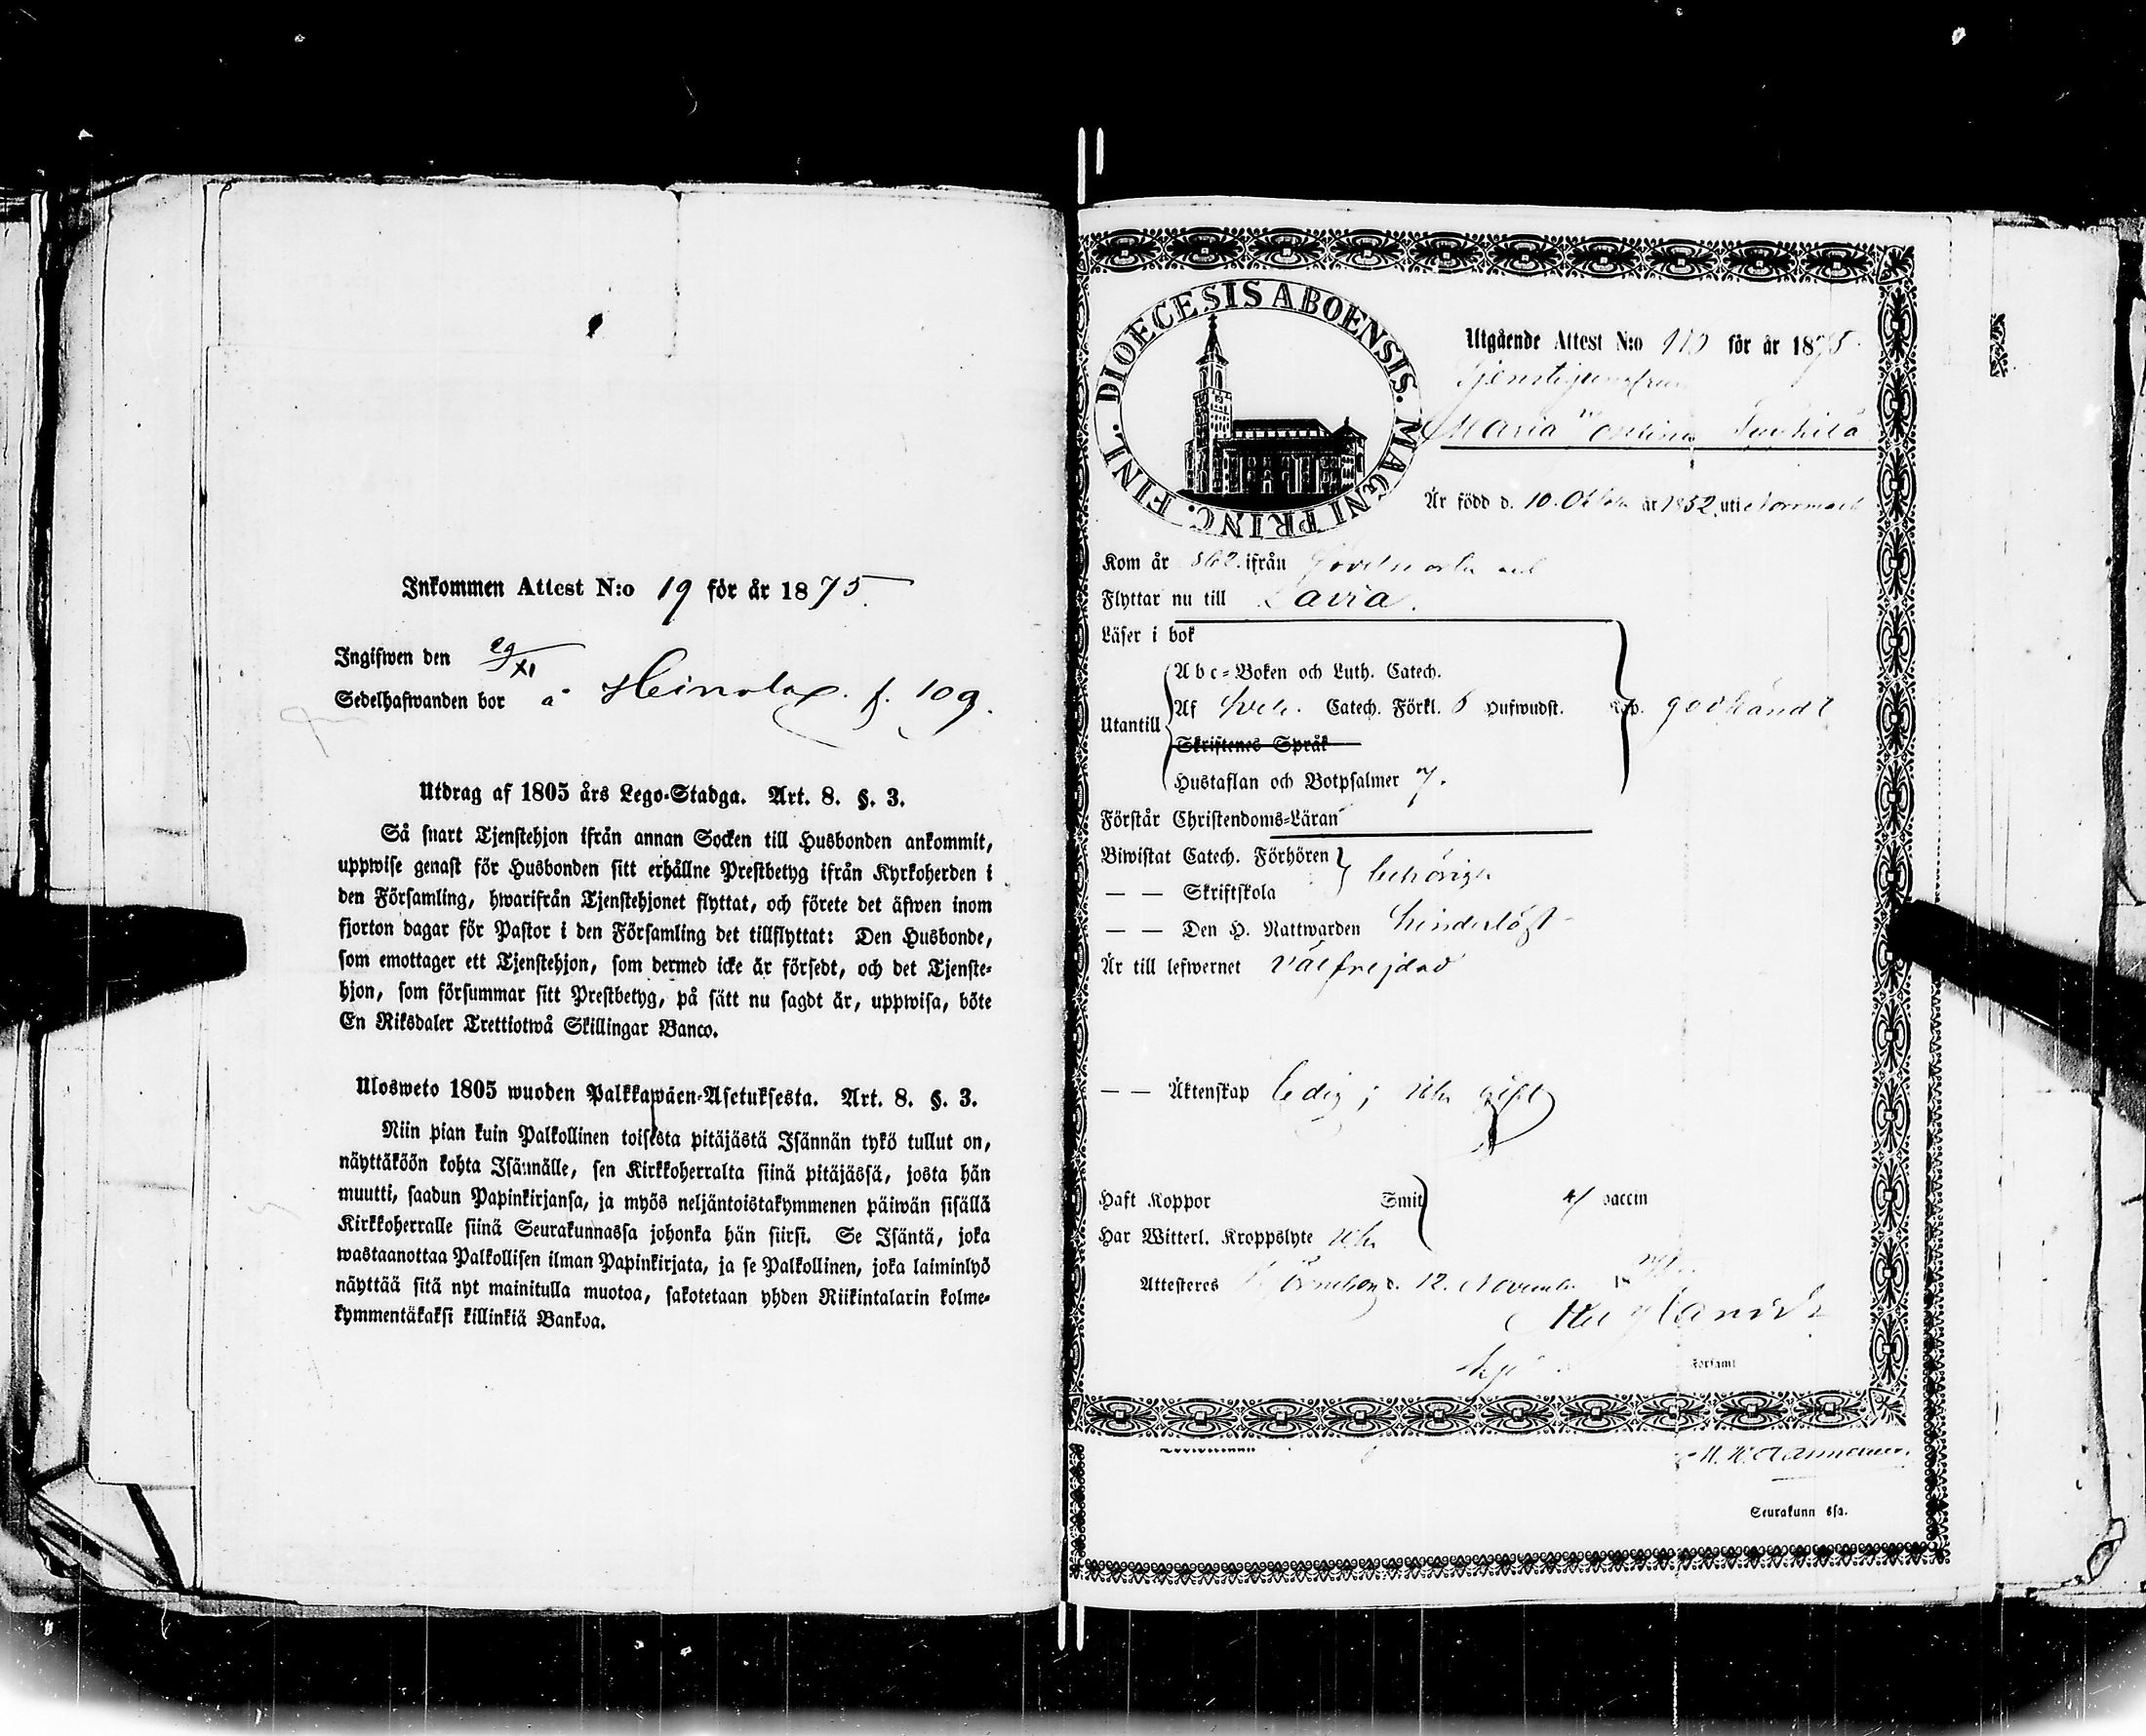 Inkommen Attest N:o 19 för år 1875.
Ingifwen den 29/XI
Sedelhafwanden bor å Heinolax. f. 109.
Utdrag af 1805 års Lego-Stadga. Art. 8. §. 3.
Så snart Tjenstehjon ifrån annan Socken till Husbonden ankommit,
uppwise genast för Husbonden sitt erhållne Prestbetyg ifrån Kyrkoherden i
den Församling, hwarifrån Tjenstehjonet flyttat, och förete det äfwen inom
fjorton dagar för Pastor i den Församling det tillflyttat: Den Husbonde,
som emottager ett Tjenstehjon, som dermed icke är försedt, och det Tjenste-
hjon, som försummar sitt Prestbetyg, på sätt nu sagdt är, uppwisa, böte
En Riksdaler Trettiotwå Skillingar Banco.
Ulosweto 1805 wuoden Palkkawäen-Asetuksesta. Art. 8. §. 3.
Niin pian kuin Palkollinen toisesta pitäjästä Isännän tykö tullut on,
näyttäköön kohta Isännälle, sen Kirkkoherralta siinä pitäjässä, josta hän
muutti, saadun Papinkirjansa, ja myös neljäntoistakymmenen päiwän sisällä
Kirkkoherralle siinä Seurakunnassa johonka hän siirsi. Se Isäntä, joka
wastaanottaa Palkollisen ilman Papinkirjata, ja se Palkollinen, joka laiminlyö
näyttää sitä nyt mainitulla muotoa, sakotetaan yhden Riikintalarin kolme-
kymmentäkaksi killinkiä Bankoa.
DIOECESIS ABOENSIS. MAGNI PRINC. FINL.
Utgående Attest N:o för år 1875.
Tjenstejungfrun
Maria
Är född d. 10. Octob. år 1852 uti Norrmark
Kom år 1862. ifrån
Flyttar nu till Lavia.
Läser i bok
Utantill
Abc-Boken och Luth. Catech.
Af Catech. Förkl. Hufwudst. godkändt
Skriftenes Språk
Hustaflan och Botpsalmer 7.
Förstår Christendoms-Läran
Biwistat Catech. Förhören
— — Skriftskola behörigen
— — Den H. Nattwarden hinderlöst
Är till lefwernet välfrejdad
— — Äktenskap ledig; icke gift
Haft Koppor Smit vaccin
Har Witterl. Kroppslyte icke
Attesteres d. 12. November 18
Församl
Seurakunn ssa.